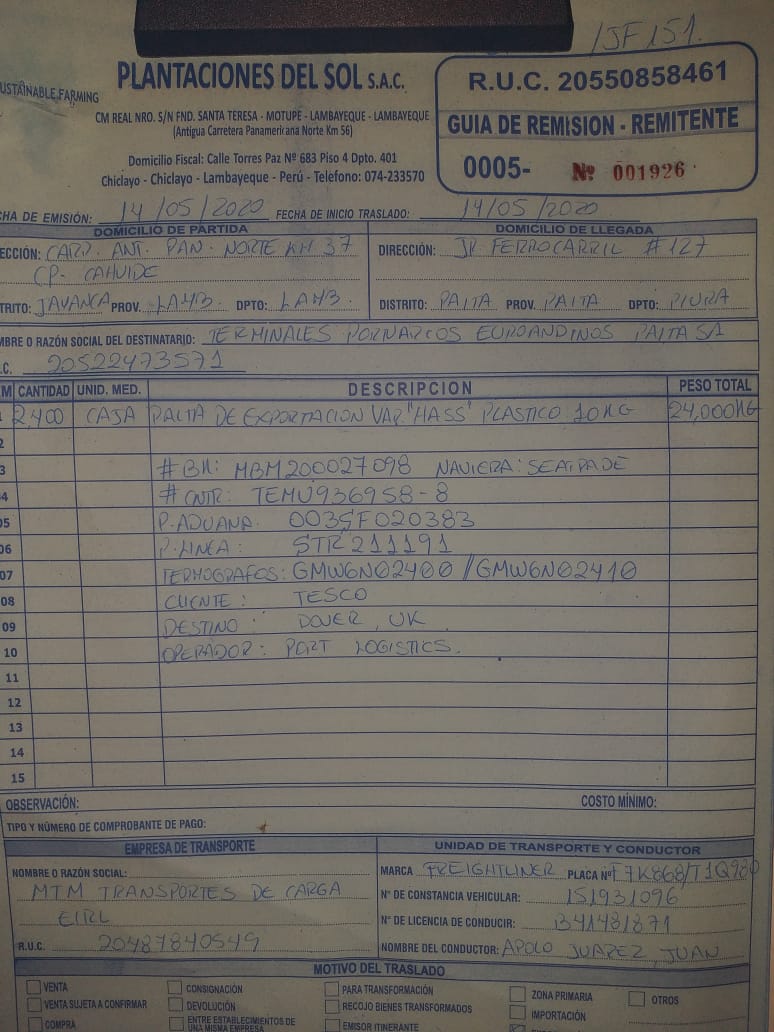 /JF151.
SUSTAINABLE FARMING
PLANTACIONES DEL SOL S.A.C.
CM REAL NRO. S/N FND. SANTA TERESA - MOTUPE - LAMBAYEQUE - LAMBAYEQUE
(Antigua Carretera Panamericana Norte Km 56)
Domicilio Fiscal: Calle Torres Paz Nº 683 Piso 4 Dpto. 401
Chiclayo - Chiclayo - Lambayeque - Perú - Telefono: 074-233570
R.U.C. 20550858461
GUIA DE REMISION - REMITENTE
0005- Nº 001926
CHA DE EMISIÓN: 14/05/2020 FECHA DE INICIO TRASLADO: 14/05/2020
DOMICILIO DE PARTIDA
ECCIÓN: CARR. ANT. PAN. NORTE KM 37
CP. CAHUIDE
TRITO: JAYANCA PROV. LAMB. DPTO: LAMB.
DOMICILIO DE LLEGADA
DIRECCIÓN: JR FERROCARRIL #127
DISTRITO: PAITA PROV. PAITA DPTO: PIURA
MBRE O RAZÓN SOCIAL DEL DESTINATARIO: TERMINALES PORTUARIOS EUROANDINOS PAITA SA
.C. 20522473571
M CANTIDAD UNID. MED. DESCRIPCION PESO TOTAL
1 2,400 CAJA PALTA DE EXPORTACION VAR. "HASS" PLASTICO 10KG 24,000KG
2
3 #BK: MBM200027098 NAVIERA: SEATRADE
4 # CNTR: TEMU936958-8
05 P. ADUANA. 003SF020383
06 P. LINEA: STR211191
07 TERMOGRAFOS: GMW6N02400 / GMW6N02410
08 CLIENTE: TESCO
09 DESTINO: DOVER, UK
10 OPERADOR: PORT LOGISTICS.
11
12
13
14
15
OBSERVACIÓN: COSTO MÍNIMO:
TIPO Y NÚMERO DE COMPROBANTE DE PAGO:
EMPRESA DE TRANSPORTE
NOMBRE O RAZÓN SOCIAL:
MTM TRANSPORTES DE CARGA
EIRL
R.U.C. 20487840549
UNIDAD DE TRANSPORTE Y CONDUCTOR
MARCA FREIGHTLINER PLACA Nº F7K868/T1Q980
N° DE CONSTANCIA VEHICULAR: 151931096
N° DE LICENCIA DE CONDUCIR: B41481871
NOMBRE DEL CONDUCTOR: APOLO JUAREZ, JUAN
MOTIVO DEL TRASLADO
VENTA CONSIGNACIÓN PARA TRANSFORMACIÓN ZONA PRIMARIA OTROS
VENTA SUJETA A CONFIRMAR DEVOLUCIÓN RECOJO BIENES TRANSFORMADOS IMPORTACIÓN
COMPRA ENTRE ESTABLECIMIENTOS DE UNA MISMA EMPRESA EMISOR ITINERANTE